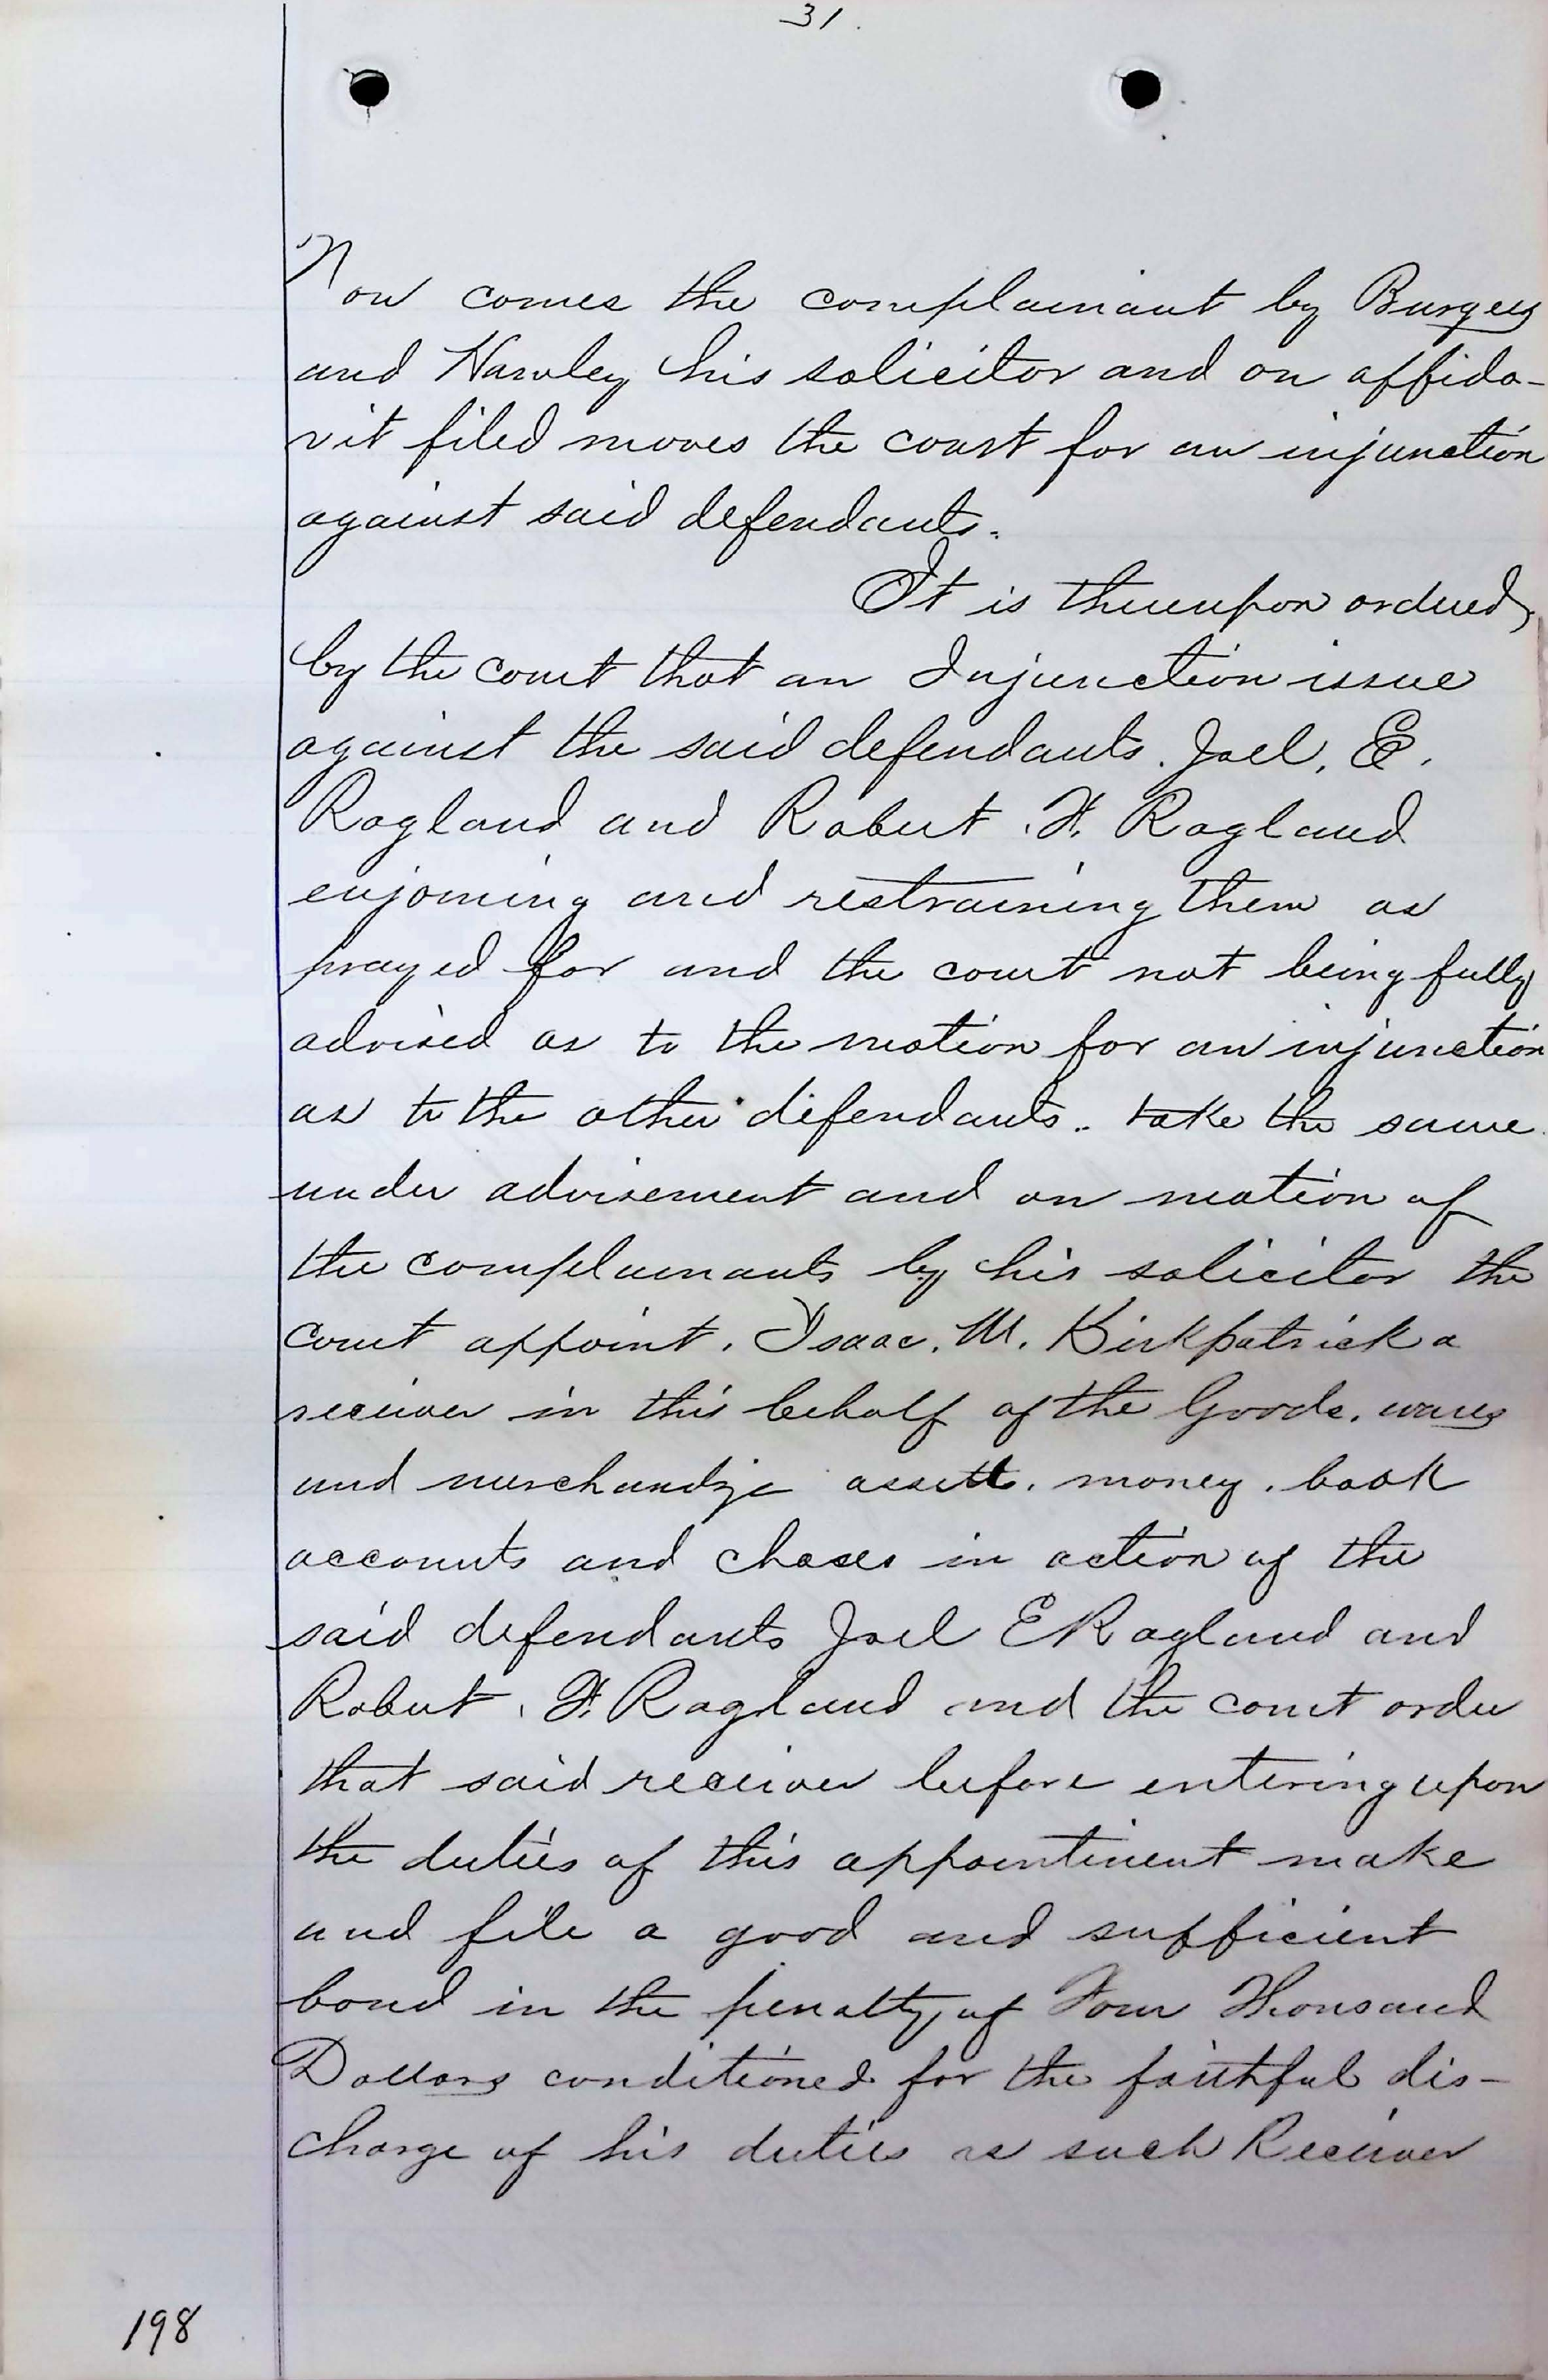 31.
Now comes the complainant by Burgess
and Hawley his solicitor and on affida-
vit filed moves the court for an injunction
against said defendants.
It is thereupon ordered
by the court that an Injunction issue
against the said defendants. Joel. E.
Ragland and Robert. F. Ragland
enjoining and restraining them as
prayed for and the court not being fully
advised as to the motion for an injunction
as to the other defendants.. take the same
under advisement and on motion of
the complainants by his solicitor the
Court appoint. Isaac. M. Kirkpatrick a
receiver in this behalf of the Goods. wares
and merchandize assetts. money. book
accounts and choses in action of the
said defendants Joel E Ragland and
Robert. F. Ragland and the court order
that said receiver before entering upon
the duties of this appointment make
and file a good and sufficient
bond in the penalty of Four Thousand
Dollars conditioned for the faithful dis-
charge of his duties as such Receiver
198